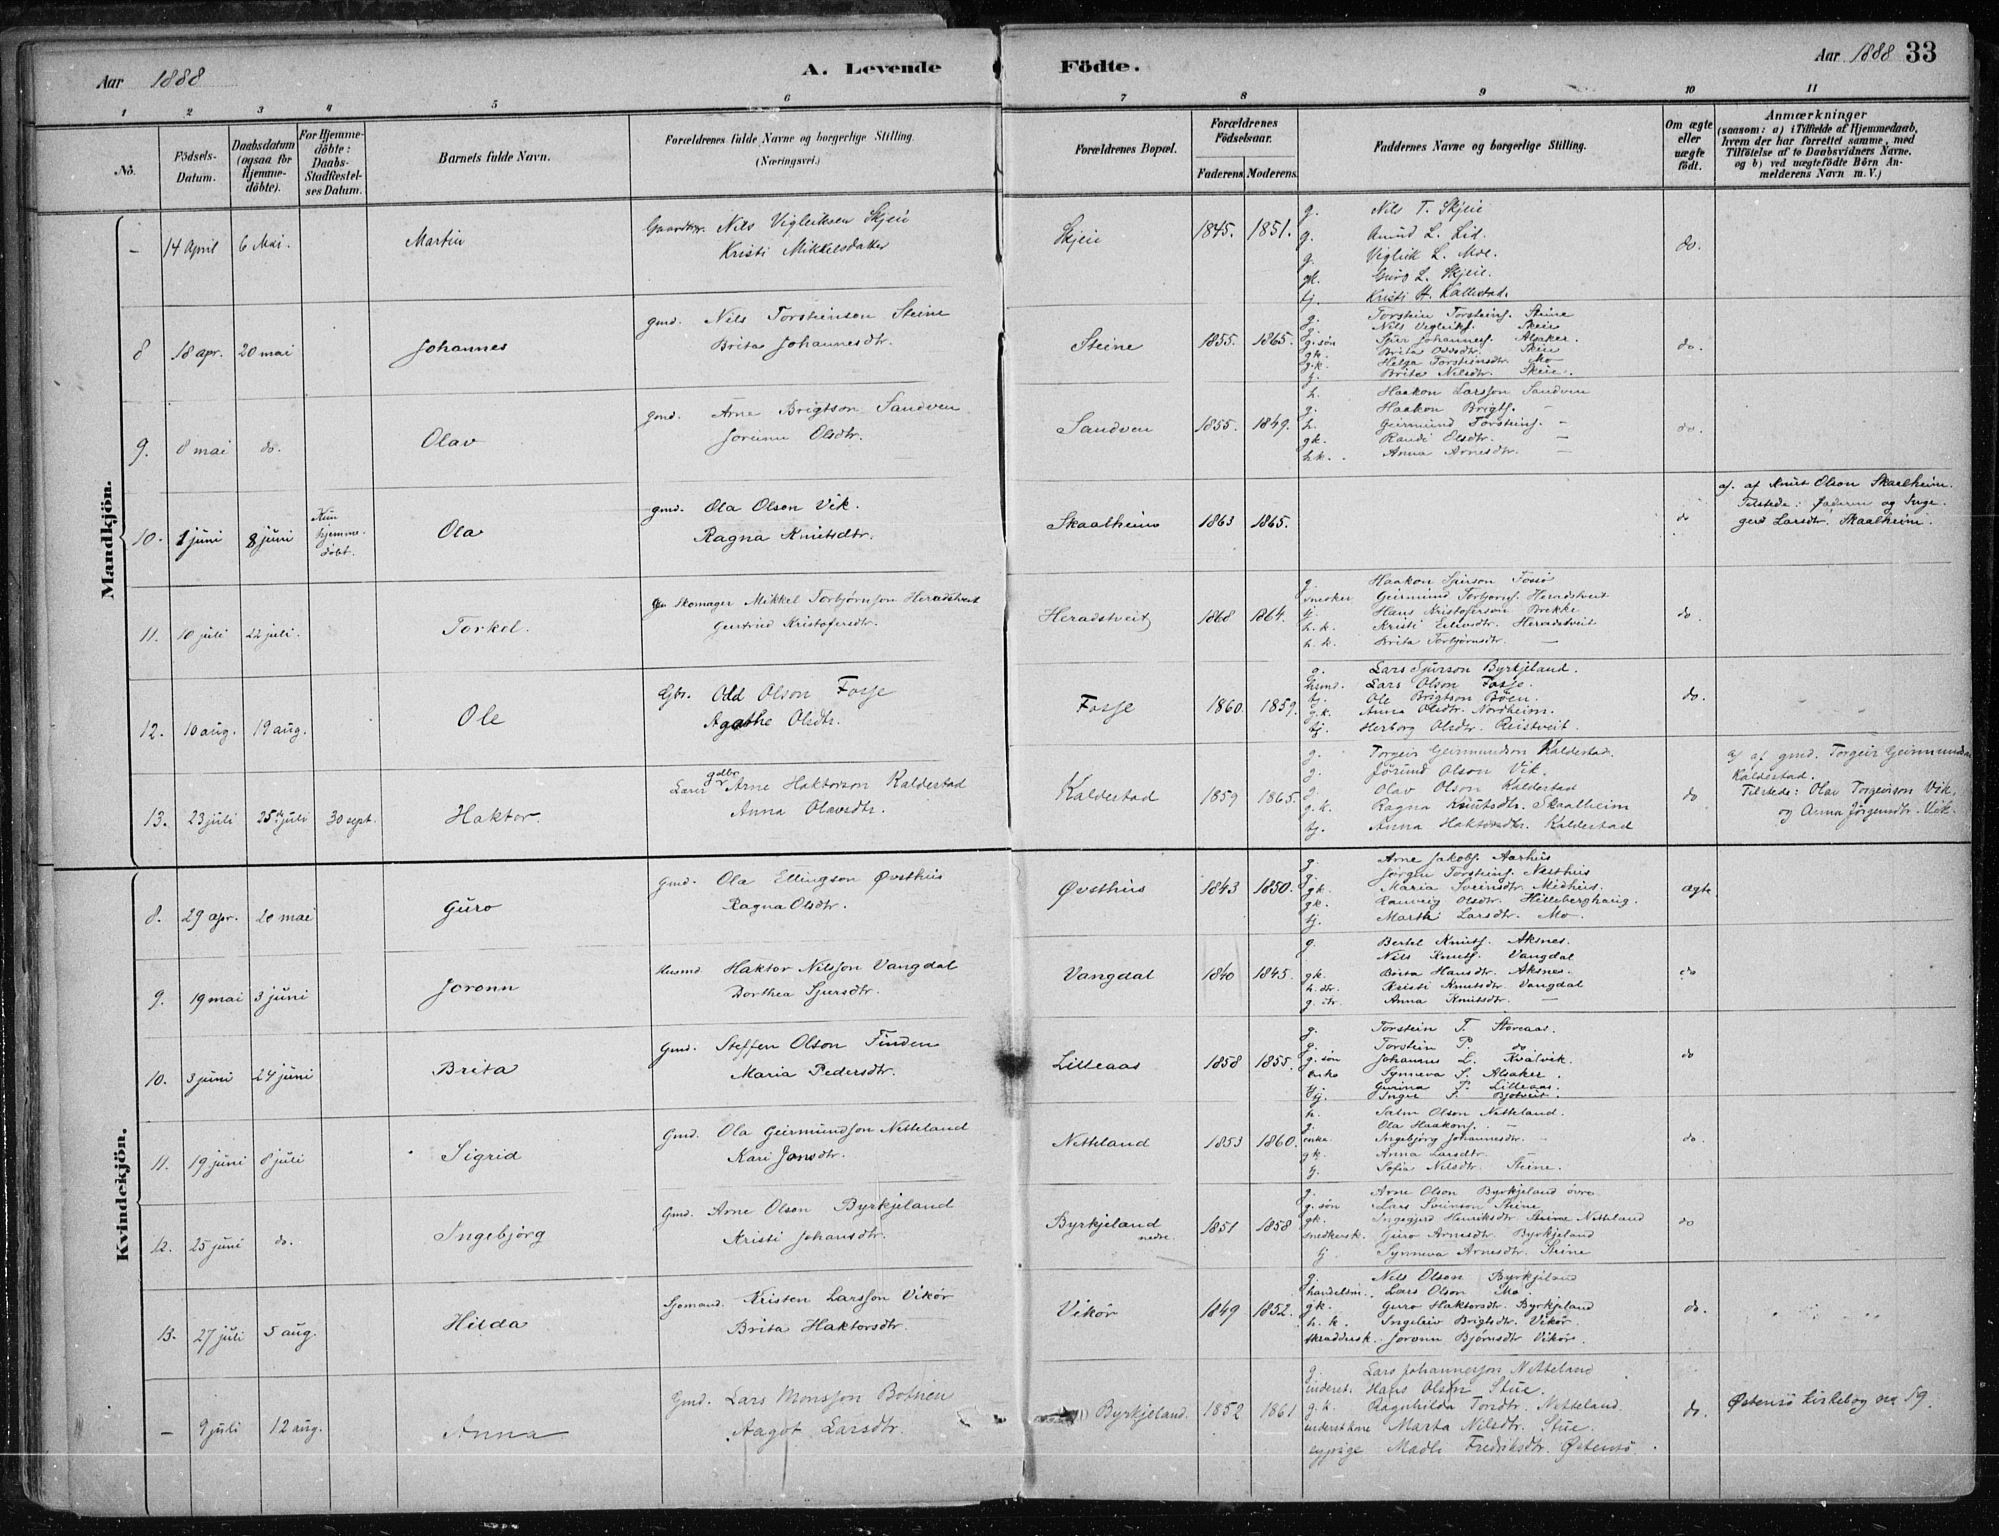 Aar 1888
A. Levende
Födte.
Aar 1888 33
1 2 3 4 5 6 7 8 9 10 11
No.
Födsels-Datum.
Daabsdatum (ogsaa for Hjemmedöbte).
For Hjemmedöbte: Daabs-Stadfæstelses Datum.
Barnets fulde Navn.
Forældrenes fulde Navne og borgerlige Stilling. (Næringsvei.)
Forældrenes Bopæl.
Forældrenes Födselsaar.
Faderens. Moderens.
Faddernes Navne og borgerlige Stilling.
Om ægte eller uægte födt.
Anmærkninger
(saasom: a) i Tilfælde af Hjemmedaab, hvem der har forrettet samme, med Tilföielse af to Daabsvidners Navne, og b) ved uægtefödte Börn Anmelderens Navn m.V.)
Mandkjön.
- 14 April 6 Mai. Martin
Gaardbr. Nils Vigleiksen Skjeie
Kristi Mikkelsdatter
Skjeie 1845. 1851.
g. Nils T. Skjeie
g. Amund L. Lid.
g. Vigleik L. Moe.
gk. Guro L. Skjeie.
tj. Kristi H. Kallestad.
do.
8 18 apr. 20 mai Johannes
gmd. Nils Torsteinson Steine
Brita Johannesdtr.
Steine 1855. 1865.
g. Torstein Torsteins. Steine
g. Nils Vigleiks. Skeie
g. søn Sjur Johannes. Alsaker.
gk. Brita Olsdtr. Skeie
g.k. Helga Torsteinsdtr. Mo
tj. Brita Nilsdtr. Skeie.
do.
9. 8 mai do. Olav
gmd. Arne Brigtson Sandven
Jorunn Olsdtr.
Sandven 1855. 1849.
h. Haakon Larsson Sandven
g. Haakon Brigts. -
h. Geirmund Torsteins. -
gk. Randi Olsdtr. -
h.k. Anna Arnesdtr. -
do.
10. 1 juni 8 juni Kun hjemmedøbt. Ola
gmd. Ola Olson Vik.
Ragna Knutsdtr.
Skaalheim 1863 1865.
do
a). af Knut Olson Skaalheim.
Tilstede: Faderen og Inge
gerd Larsdtr. Skaalheim.
11. 10 juli 22 juli. Torkel.
Skomager Mikkel Torbjørnson Heradstveit
Gjertrud Kristofersdtr.
Heradstveit 1868 1864.
g. Haakon Sjurson Fosse
snedker Geirmund Torbjørns. Heradstveit
tj. Hans Kristoferson Brekke
h.k. Kristi Eilivsdtr. Heradstveit
h.k. Brita Torbjørnsdtr. -
do.
12. 10 aug. 19 aug. Ole
Gbr. Odd Olson Fosse
Agathe Olsdtr.
Fosse 1860. 1859.
g. Lars Sjurson Byrkjeland.
husmd. Lars Olson Fosse.
tj. Ole Brigtson Bøen.
g.k. Anna Olsdtr. Nordheim.
tj. Herborg Olsdtr. Reistveit.
do.
13. 23 juli 25de juli 30 sept. Haktor
Lars gdbr Arne Haktorson Kaldestad
Anna Olavsdtr.
Kaldestad 1859 1865.
g. Torgeir Geirmundson Kaldestad.
g. Jørund Olson Vik.
g. Olav Olson Kaldestad
g.k. Ragna Knutsdtr. Skaalheim
tj. Anna Haktorsdtr. Kaldestad
do
a) af gmd. Torgeir Geirmundson
Kaldestad.
Tilstede: Olav Torgeirson Vik,
og Anna Jørgensdtr. Vik.
Kvindekjön.
8. 29 apr. 20 mai Guro
Gmd. Ola Ellingson Øvsthus
Ragna Olsdtr.
Øvsthus 1843 1850.
g. Arne Jakobs. Aarhus
g. Jørgen Torsteins. Nesthus
gk. Maria Sveinsdtr. Midhus.
gk. Ranveig Olsdtr. Hilleberghaug.
tj. Martha Larsdtr. Mo.
ægte.
9. 19 mai 3 juni Joronn
Husmd Haktor Nilsson Vangdal
Dorthea Sjursdtr.
Vangdal 1840 1845.
g. Bertel Knuts. Aksnes.
Nils Knuts. Vangdal
gk. Brita Hansdtr. Aksnes
h.dtr. Kristi Knutsdtr. Vangdal
g.dtr. Anna Knutsdtr. -
do
10. 3 juni 24 juni Brita
Gmd. Steffen Olson Tinden
Maria Pedersdtr.
Lilleaas 1858 1855.
g. Torstein T. Storeaas.
g. Torstein P. do.
g. søn Johannes L. Kvalvik.
enke Synneva S. Alsaker.
tj. Gurina P. Lilleaas.
tj. Inger P. Bjotveit.
do
11. 19 juni 8 juli Sigrid
Gmd. Ola Geirmundson Netteland
Kari Jonsdtr.
Netteland 1853 1860.
h. Salm Olson Netteland.
g. Ola Haakons. -
enke Ingebjørg Johannesdtr. -
gk. Anna Larsdtr. -
tj. Sofia Nilsdtr. Steine.
do.
12. 25 juni do. Ingebjørg
Gmd. Arne Olson Byrkjeland
Kristi Johansdtr.
Byrkjeland nedre. 1851 1858
g. Arne Olson Byrkjeland øvre
g. søn Lars Sveinson Steine
gk. Ingegjerd Henriksdtr. Steine Netteland
snedkersk. Guro Arnesdtr. Byrkjeland
tj. Synneva Arnesdtr. Steine
do
13. 27 juli 5 aug. Hilda
Sjømand. Kristen Larsson Vikør
Brita Haktorsdtr.
Vikør 1849 1852.
g. Nels Olson Byrkjeland
handelsm. Lars Olson Mo.
gk. Guro Haktorsdtr. Byrkjeland
h.k. Ingeleiv Brigtsdtr. Vikør.
skraddersk. Joronn Bjørnsdtr Vikør.
do.
- 9 juli 12 aug. Anna
Gmd. Lars Monsson Botnen
Aagot Larsdtr.
Byrkjeland. 1852 1861
g. Lars Johannesson Netteland
inderst. Hans Olson Stue.
g.k. Ragnhilda Tordtr. Netteland.
inderstkone Marta Nilsdtr. Stue.
Madli Fredriksdtr. Østensø.
do.
Østensø kirkebog no 19.